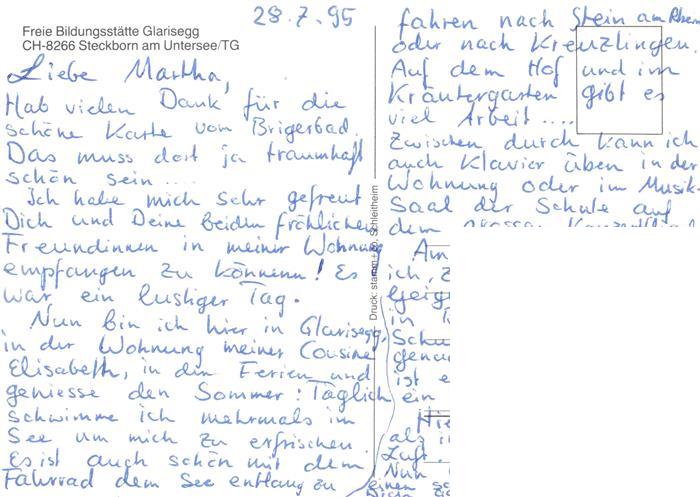 28.7.95
Freie Bildungsstätte Glarisegg
CH-8266 Steckborn am Untersee/TG
Liebe Martha,
Hab vielen Dank für die
schöne Karte vom Brigerbad.
Das muss dort ja traumhaft
schön sein ....
Ich habe mich sehr gefreut
Dich und Deine beiden fröhlichen
Freundinnen in meiner Wohnung
empfangen zu können! Es
war ein lustiger Tag.
Nun bin ich hier in Glarisegg,
in der Wohnung meiner Cousine
Elisabeth, in den Ferien und
geniesse den Sommer: Täglich
schwimme ich mehrmals im
See um mich zu erfrischen.
Es ist auch schön mit dem
Fahrrad dem See entlang zu
Druck: stamm+co. Schleitheim
fahren nach Stein am Rhein
oder nach Kreuzlingen.
Auf dem Hof und im
Kräutergarten gibt es
viel Arbeit ....
Zwischen durch kann ich
auch Klavier üben in der
Wohnung oder im Musik-
Saal der Schule auf
dem grossen Konzertflügel
Am
ich, z
Geig
in
Schu
genau
ist e
ein
Hie
als i
Luft.
Nun
einen sc